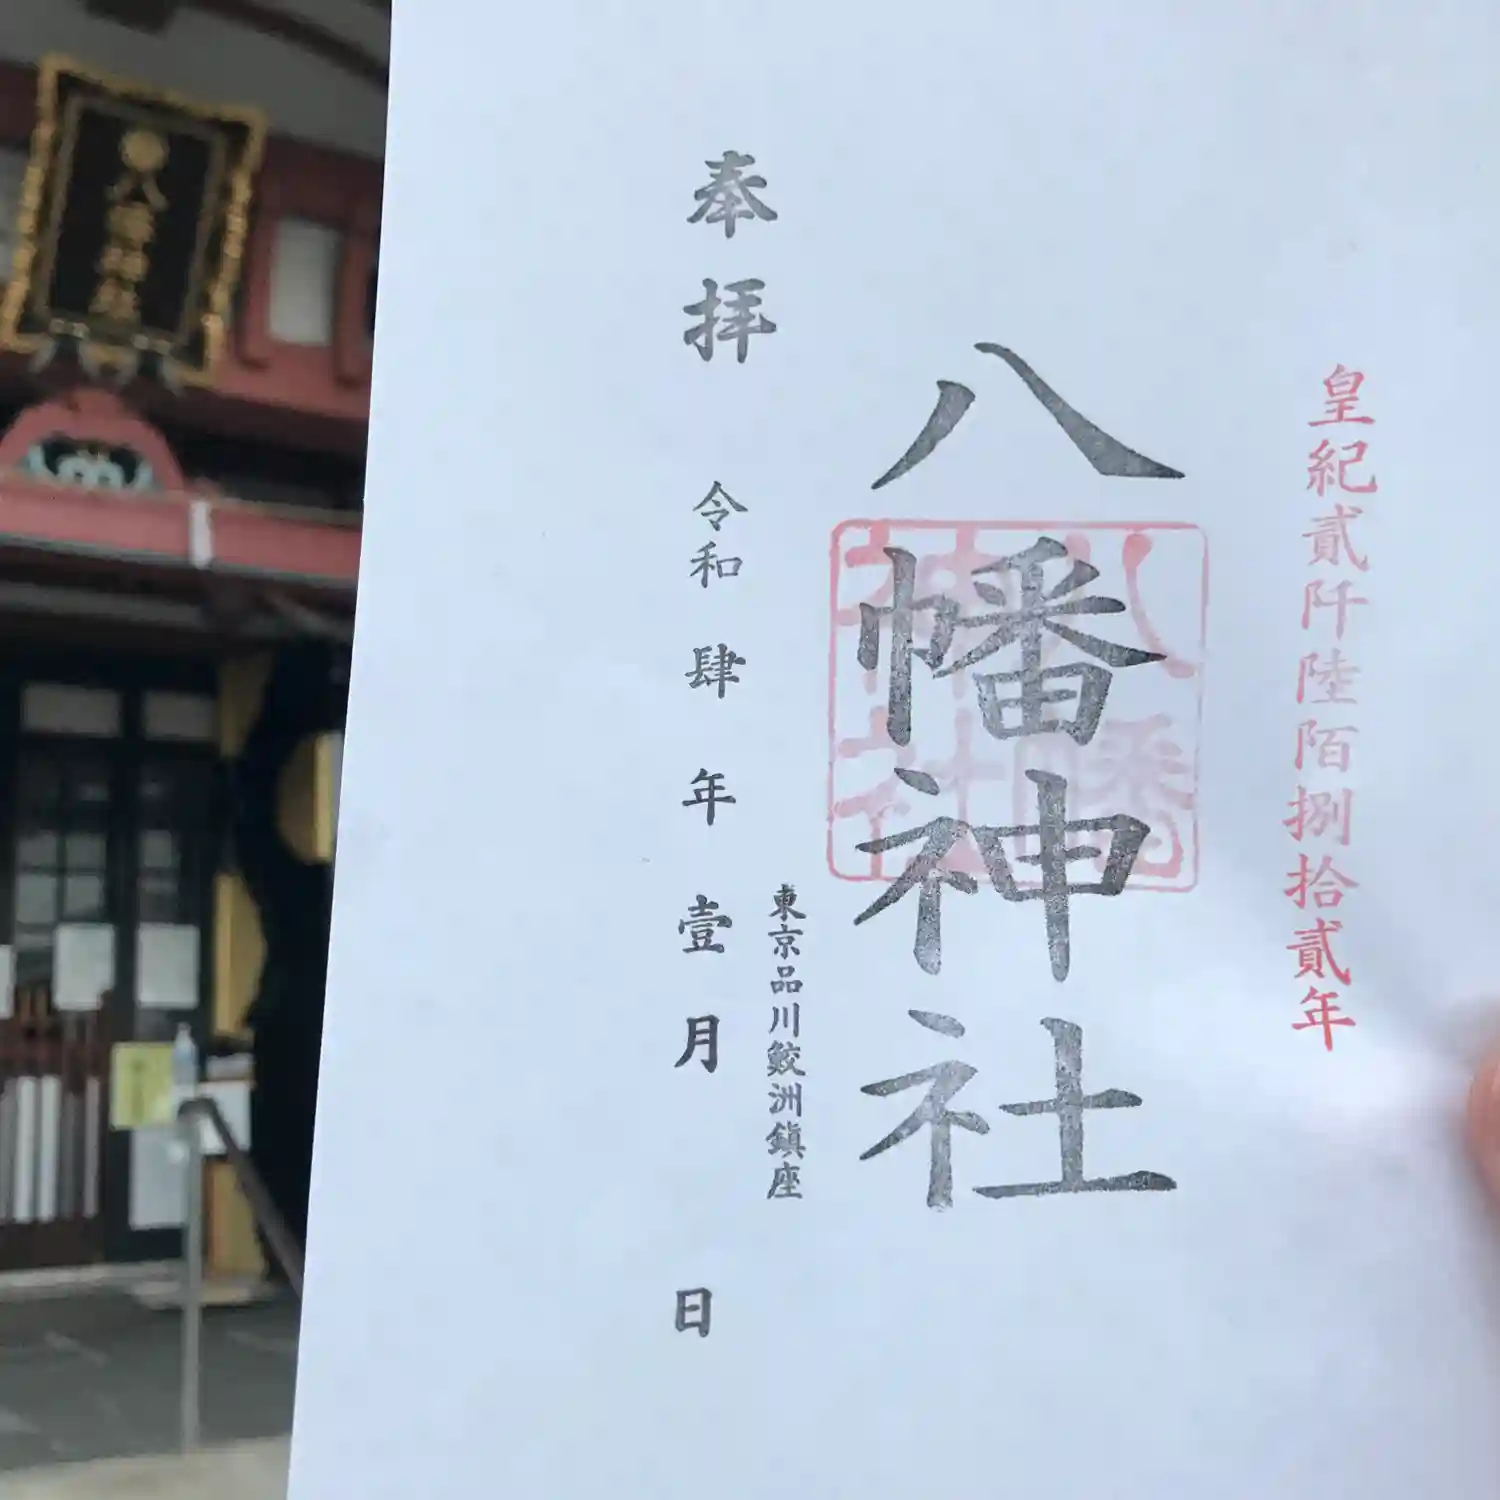 皇紀貳阡陸陌捌拾貳年
八幡神社
八幡神社
東京品川鮫洲鎭座
奉拝 令和肆年壹月 日
八幡神社